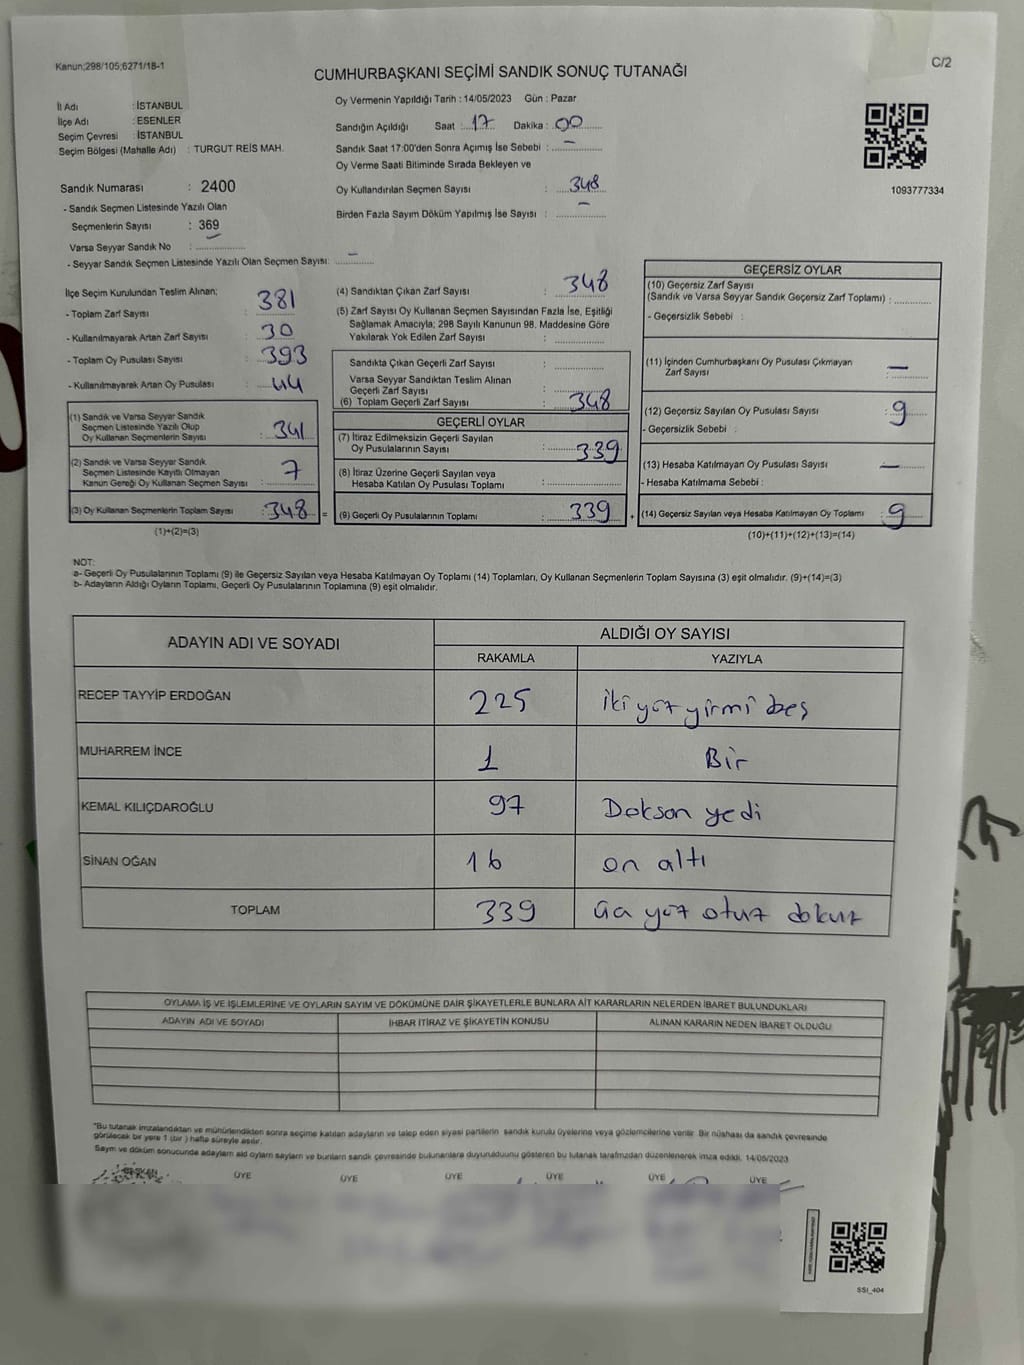 Kanun;298/105;6271/18-1
C/2
CUMHURBAŞKANI SEÇİMİ SANDIK SONUÇ TUTANAĞI
İl Adı : İSTANBUL
İlçe Adı : ESENLER
Seçim Çevresi : İSTANBUL
Seçim Bölgesi (Mahalle Adı) : TURGUT REİS MAH.
Sandık Numarası : 2400
- Sandık Seçmen Listesinde Yazılı Olan
Seçmenlerin Sayısı : 369
Varsa Seyyar Sandık No : ..............
- Seyyar Sandık Seçmen Listesinde Yazılı Olan Seçmen Sayısı: –
Oy Vermenin Yapıldığı Tarih : 14/05/2023 Gün : Pazar
Sandığın Açıldığı Saat : 17 Dakika : 00
Sandık Saat 17:00'den Sonra Açımış İse Sebebi : –
Oy Verme Saati Bitiminde Sırada Bekleyen ve
Oy Kullandırılan Seçmen Sayısı : 348
Birden Fazla Sayım Döküm Yapılmış İse Sayısı : –
1093777334
İlçe Seçim Kurulundan Teslim Alınan;
- Toplam Zarf Sayısı : 381
- Kullanılmayarak Artan Zarf Sayısı : 30
- Toplam Oy Pusulası Sayısı : 393
- Kullanılmayarak Artan Oy Pusulası : 44
(1) Sandık ve Varsa Seyyar Sandık
Seçmen Listesinde Yazılı Olup
Oy Kullanan Seçmenlerin Sayısı : 341
(2) Sandık ve Varsa Seyyar Sandık
Seçmen Listesinde Kayıtlı Olmayan
Kanun Gereği Oy Kullanan Seçmen Sayısı : 7
(3) Oy Kullanan Seçmenlerin Toplam Sayısı : 348 =
(1)+(2)=(3)
(4) Sandıktan Çıkan Zarf Sayısı : 348
(5) Zarf Sayısı Oy Kullanan Seçmen Sayısından Fazla İse, Eşitliği
Sağlamak Amacıyla; 298 Sayılı Kanunun 98. Maddesine Göre
Yakılarak Yok Edilen Zarf Sayısı : ..............
Sandıkta Çıkan Geçerli Zarf Sayısı : ..............
Varsa Seyyar Sandıktan Teslim Alınan
Geçerli Zarf Sayısı : ..............
(6) Toplam Geçerli Zarf Sayısı : 348
GEÇERLİ OYLAR
(7) İtiraz Edilmeksizin Geçerli Sayılan
Oy Pusulalarının Sayısı : 339
(8) İtiraz Üzerine Geçerli Sayılan veya
Hesaba Katılan Oy Pusulası Toplamı : ..............
(9) Geçerli Oy Pusulalarının Toplamı : 339 +
GEÇERSİZ OYLAR
(10) Geçersiz Zarf Sayısı
(Sandık ve Varsa Seyyar Sandık Geçersiz Zarf Toplamı) : ..........
- Geçersizlik Sebebi :
(11) İçinden Cumhurbaşkanı Oy Pusulası Çıkmayan
Zarf Sayısı : –
(12) Geçersiz Sayılan Oy Pusulası Sayısı : 9
- Geçersizlik Sebebi :
(13) Hesaba Katılmayan Oy Pusulası Sayısı –
- Hesaba Katılmama Sebebi :
(14) Geçersiz Sayılan veya Hesaba Katılmayan Oy Toplamı : 9
(10)+(11)+(12)+(13)=(14)
NOT:
a- Geçerli Oy Pusulalarının Toplamı (9) ile Geçersiz Sayılan veya Hesaba Katılmayan Oy Toplamı (14) Toplamları, Oy Kullanan Seçmenlerin Toplam Sayısına (3) eşit olmalıdır. (9)+(14)=(3)
b- Adayların Aldığı Oyların Toplamı, Geçerli Oy Pusulalarının Toplamına (9) eşit olmalıdır.
ADAYIN ADI VE SOYADI ALDIĞI OY SAYISI
RAKAMLA YAZIYLA
RECEP TAYYİP ERDOĞAN 225 iki yüz yirmi beş
MUHARREM İNCE 1 Bir
KEMAL KILIÇDAROĞLU 97 Doksan yedi
SİNAN OĞAN 16 on altı
TOPLAM 339 üç yüz otuz dokuz
OYLAMA İŞ VE İŞLEMLERİNE VE OYLARIN SAYIM VE DÖKÜMÜNE DAİR ŞİKAYETLERLE BUNLARA AİT KARARLARIN NELERDEN İBARET BULUNDUKLARI
ADAYIN ADI VE SOYADI İHBAR İTİRAZ VE ŞİKAYETİN KONUSU ALINAN KARARIN NEDEN İBARET OLDUĞU
"Bu tutanak imzalandıktan ve mühürlendikten sonra seçime katılan adayların ve talep eden siyasi partilerin sandık kurulu üyelerine veya gözlemcilerine verilir. Bir nüshası da sandık çevresinde
görülecek bir yere 1 (bir ) hafta süreyle asılır.
Sayım ve döküm sonucunda adayların aldı oyların sayıları ve bunların sandık çevresinde bulunanlara duyurulduunu gösteren bu tutanak tarafımızdan düzenlenerek imza edildi. 14/05/2023
BAŞKAN ÜYE ÜYE ÜYE ÜYE ÜYE ÜYE
SSI_404